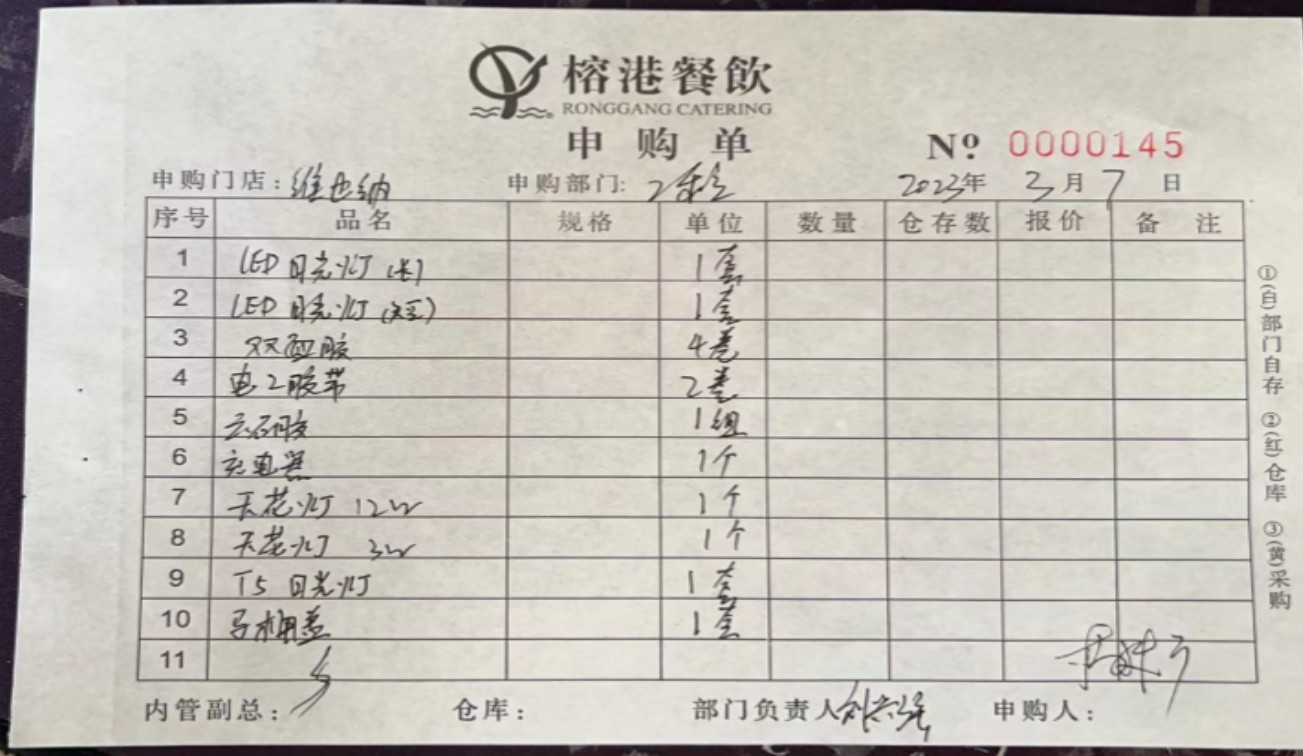 榕港餐飲
RONGGANG CATERING
申购单
№ 0000145
申购门店：维也纳 申购部门: 工程 2023年 3月 7日
序号 品名 规格 单位 数量 仓存数 报价 备注
1 LED 日光灯 (长) 1套
2 LED 日光灯 (短) 1套
3 双面胶 4卷
4 电工胶带 2卷
5 云石胶 1组
6 充电器 1个
7 天花灯 12W 1个
8 天花灯 3W 1个
9 T5 日光灯 1套
10 马桶盖 1套
11
内管副总： 仓库： 部门负责人 申购人：
①(白)部门自存 ②(红)仓库 ③(黄)采购